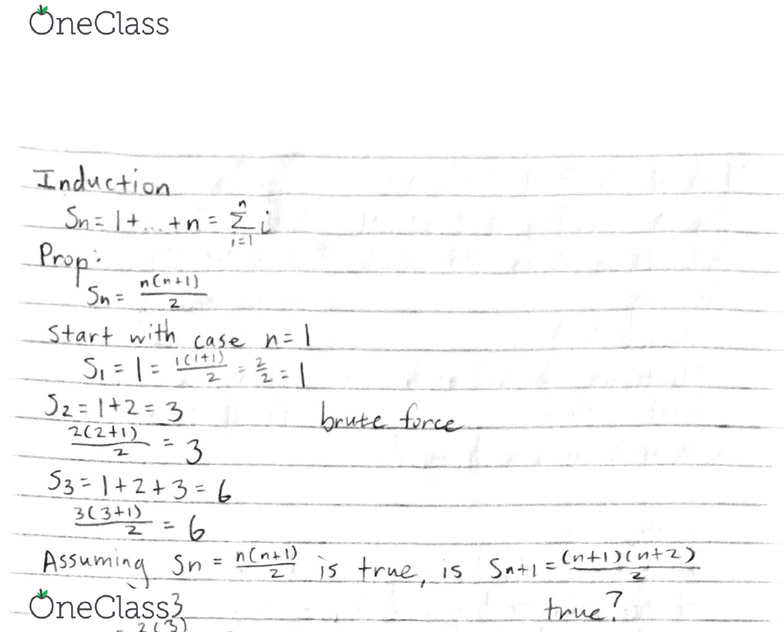 OneClass
Induction
Sn = 1 + ... + n = n Σ i=1 i
Prop:
Sn = n(n+1)/2
Start with case n = 1
S1 = 1 = 1(1+1)/2 = 2/2 = 1
S2 = 1 + 2 = 3 brute force
2(2+1)/2 = 3
S3 = 1 + 2 + 3 = 6
3(3+1)/2 = 6
Assuming Sn = n(n+1)/2 is true, is Sn+1 = (n+1)(n+2)/2
true?
OneClass 3
= 2(3)